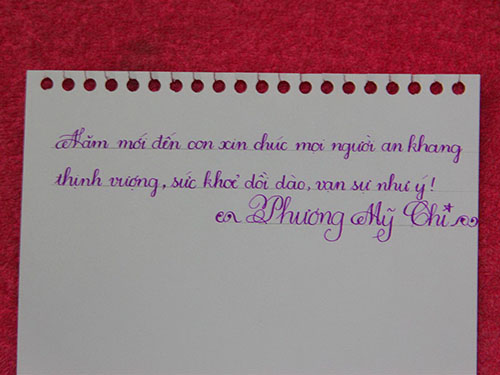 Năm mới đến con xin chúc mọi người an khang
thịnh vượng, sức khoẻ dồi dào, vạn sự như ý!
Phương Mỹ Chi